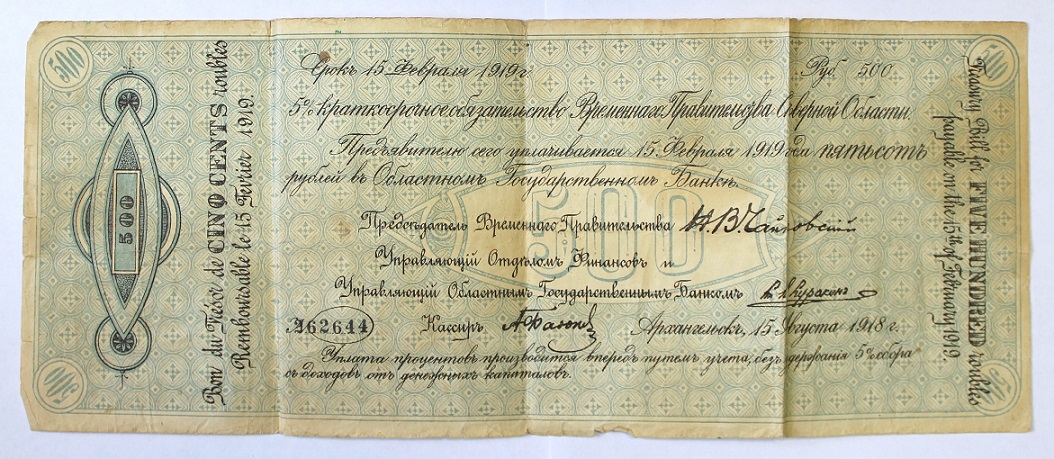 500
Bon du Trésor de CINQ CENTS roubles
Remboursable le 15 Fevrier 1919.
500
500
Срокъ 15 Февраля 1919 г.
Руб. 500
5% краткосрочное обязательство Временнаго Правительства Сѣверной Области.
Предъявителю сего уплачивается 15 Февраля 1919 года пятьсотъ
рублей въ Областномъ Государственномъ Банкѣ.
500
Предсѣдатель Временнаго Правительства Н. В. Чайковский
Управляющій Отдѣломъ Финансовъ и
Управляющій Областнымъ Государственнымъ Банкомъ
262644
Кассиръ
Архангельскъ, 15 Августа 1918 г.
Уплата процентовъ производится впередъ путемъ учета, безъ держанія 5% сбора
съ доходовъ отъ денежныхъ капиталовъ.
500
Treasury Bill for FIVE HUNDRED roubles
payable on the 15th of February 1919.
500